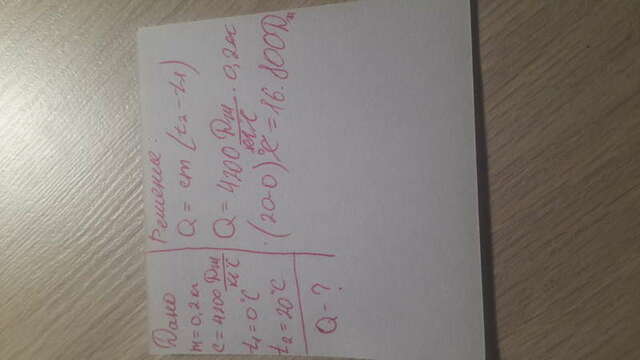 Дано
m = 0,2 кг
c = 4200 Дж/кг°C
t₁ = 0°C
t₂ = 20°C
Q - ?
Решение.
Q = cm (t₂ - t₁)
Q = 4200 Дж/кг°C · 0,2 кг
· (20-0)°C = 16.800 Дж